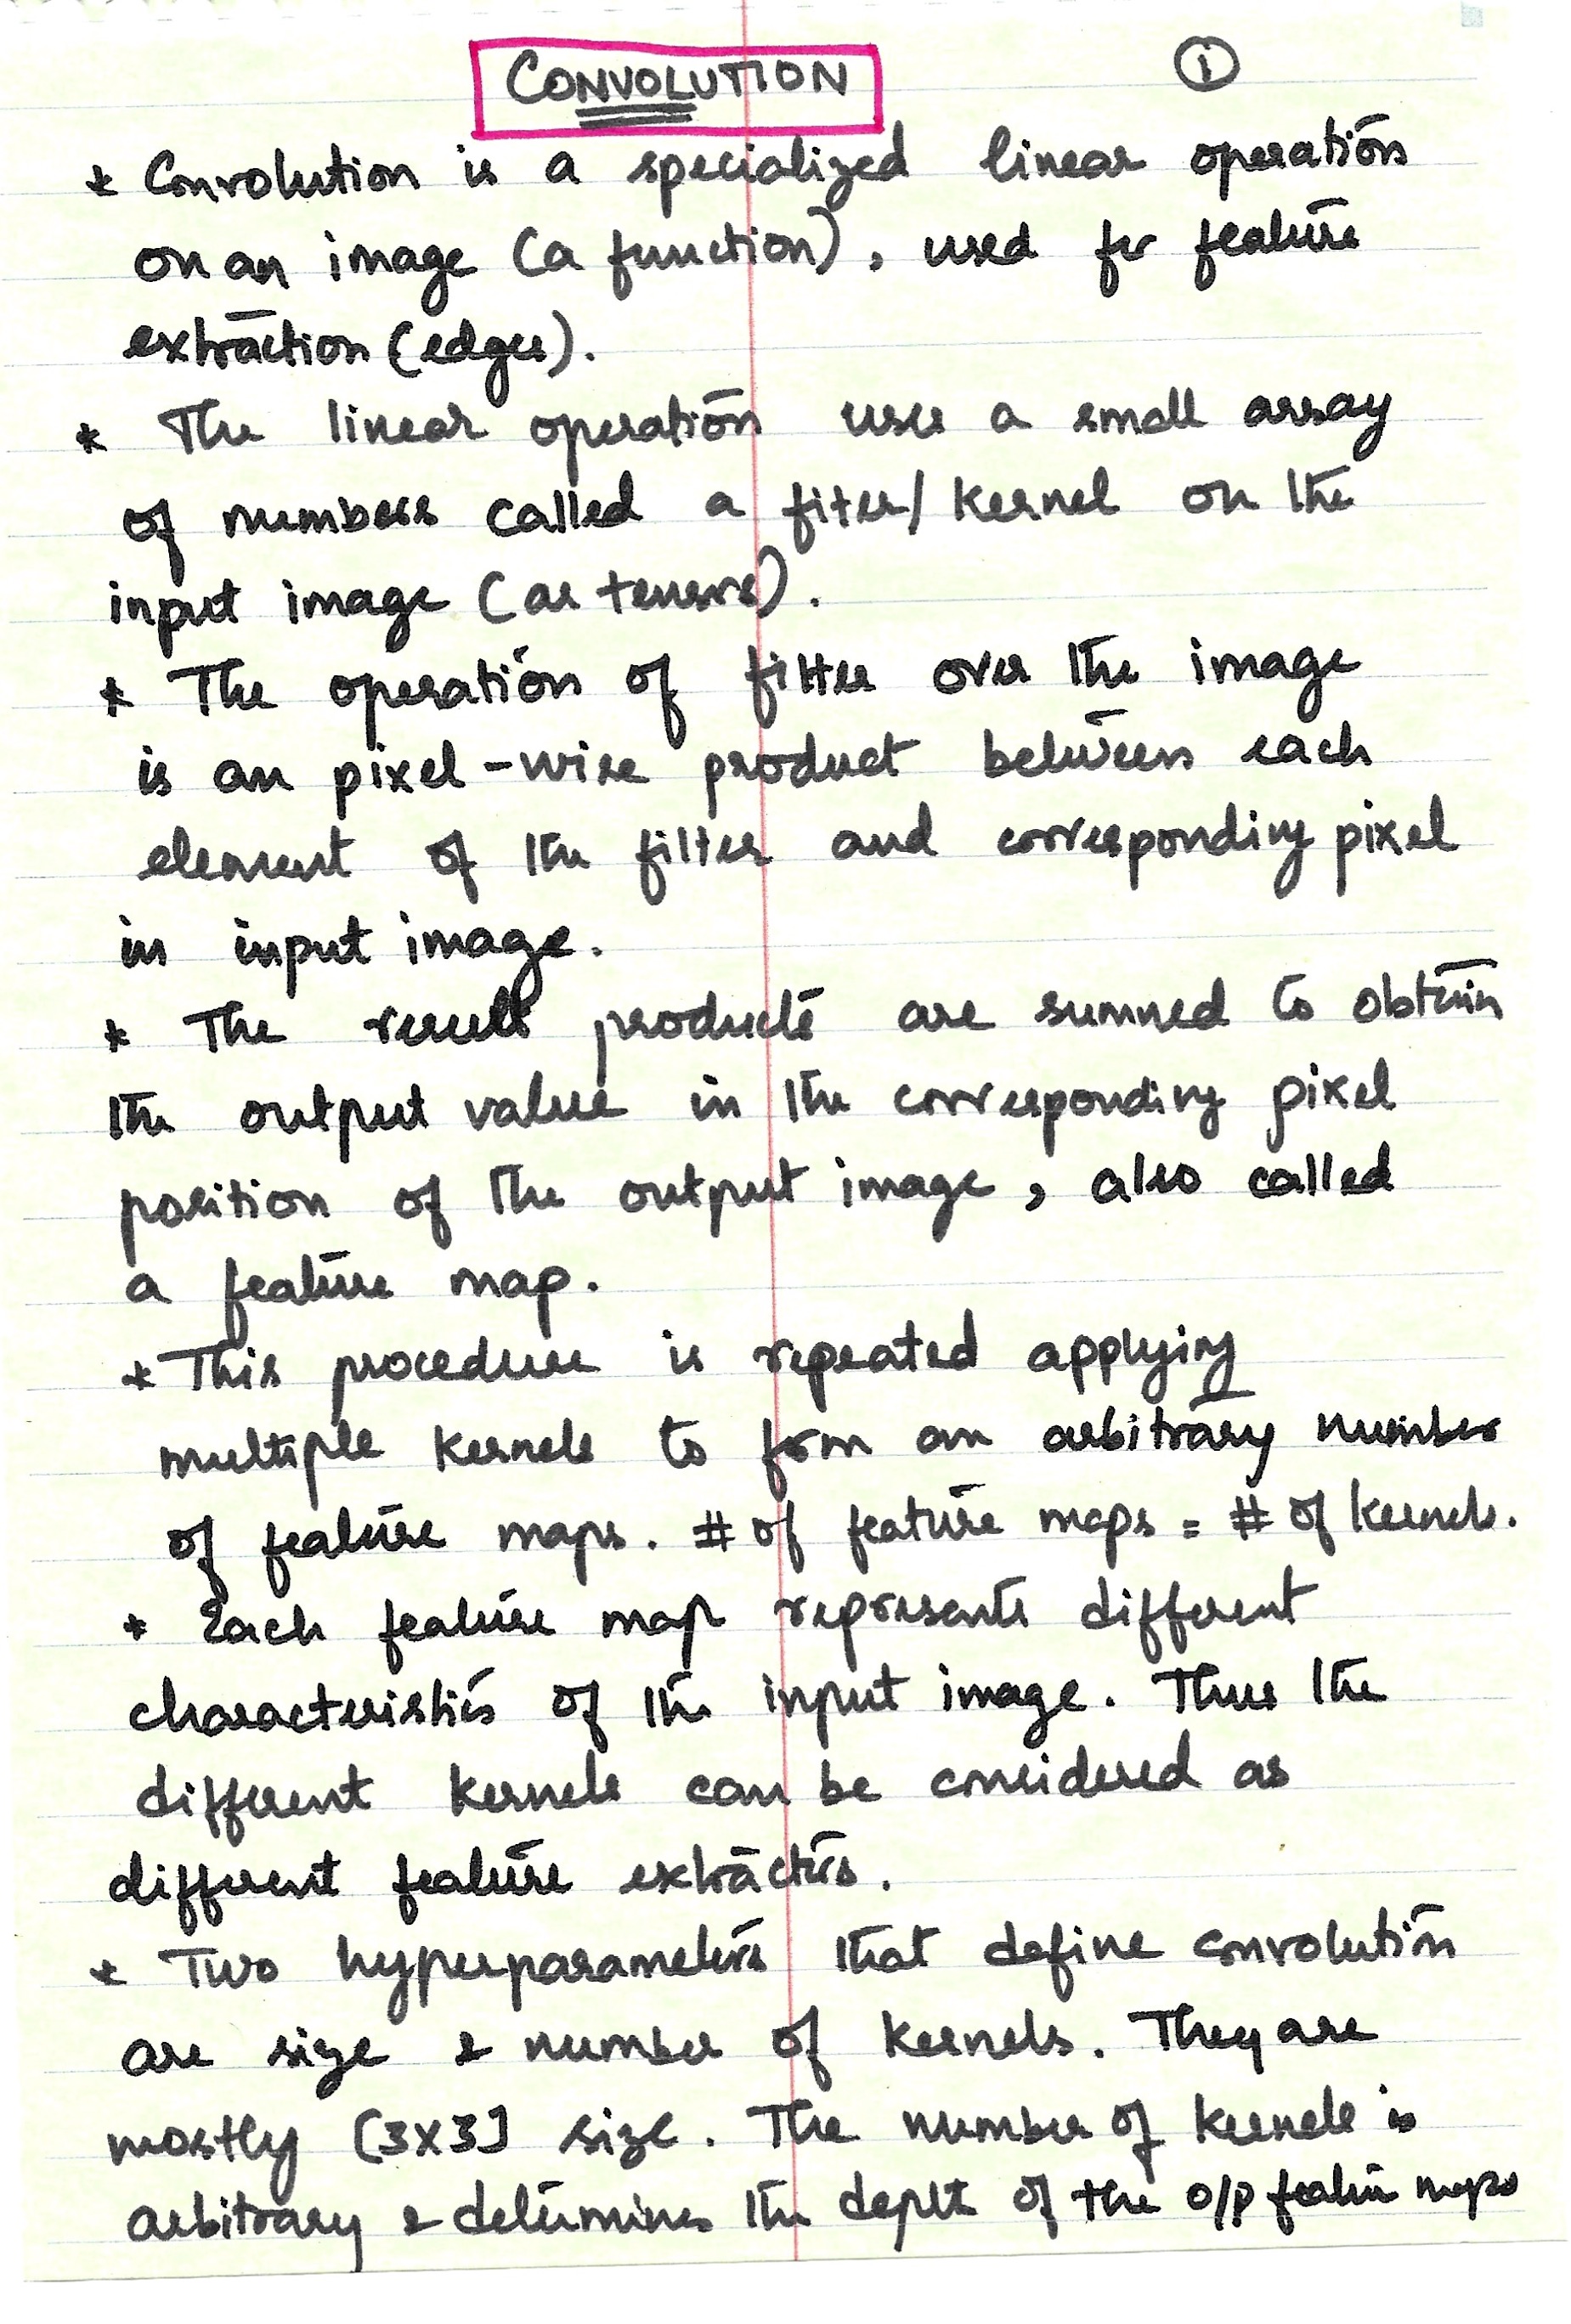 CONVOLUTION
1
* Convolution is a specialized linear operation
on an image (a function), used for feature
extraction (edges).
* The linear operation uses a small array
of numbers called a fiter/kernel on the
input image (as tensors).
* The operation of filter over the image
is an pixel-wise product between each
element of the filter and corresponding pixel
in input image.
* The result products are summed to obtain
the output value in the corresponding pixel
position of the output image, also called
a feature map.
* This procedure is repeated applying
multiple kernels to form an arbitrary number
of feature maps. # of feature maps = # of kernels.
* Each feature map represents different
characteristics of the input image. Thus the
different kernels can be considered as
different feature extractors.
* Two hyperparameters that define convolution
are size & number of kernels. They are
mostly [3x3] size. The number of kernels is
arbitrary & determines the depth of the o/p feature maps